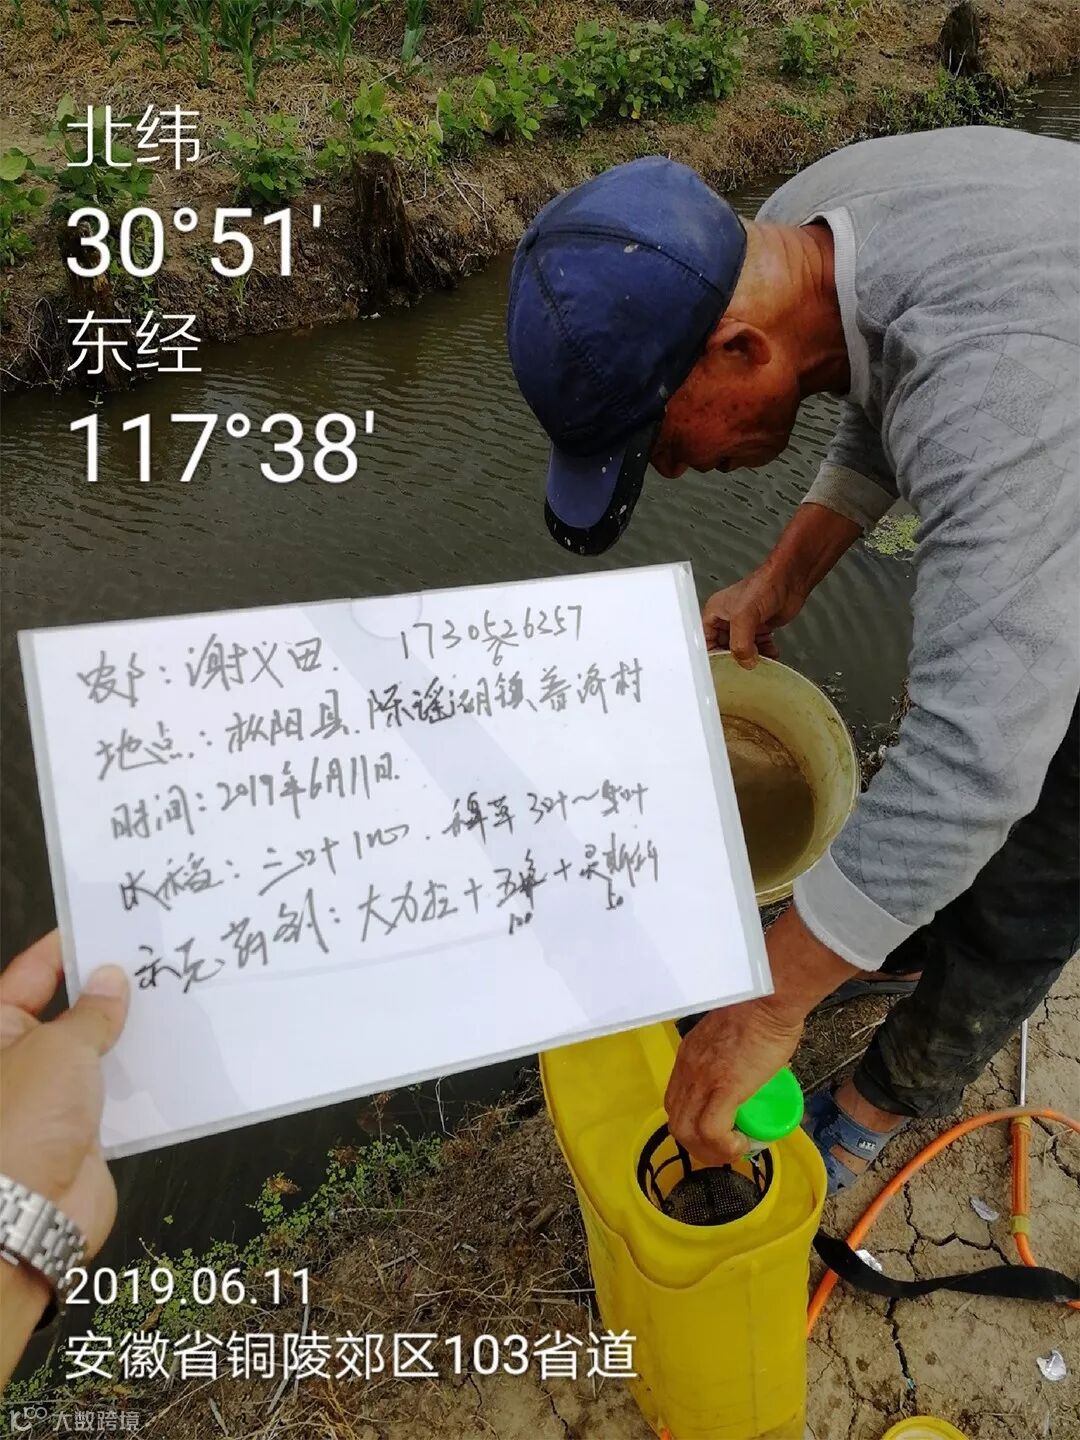 北纬
30°51'
东经
117°38'
农户:谢义田. 17305626257
地点:枞阳县.陈瑶湖镇普济村
时间:2019年6月11日.
水稻:三叶1心.稗草3叶~4叶
示范药剂:大力士+五氟+灵斯科
100 50
2019.06.11
安徽省铜陵郊区103省道
大数跨境